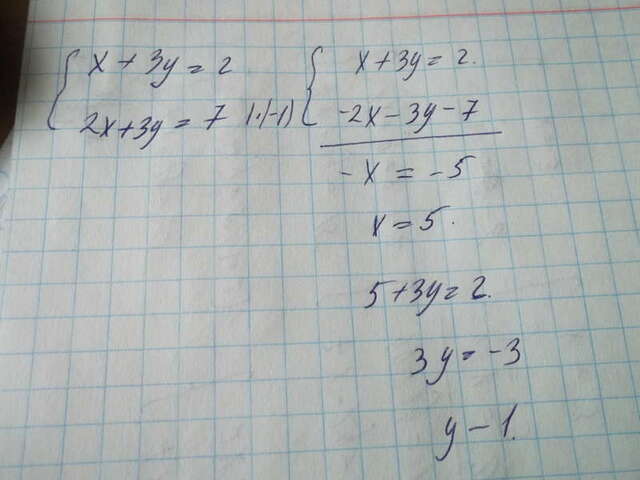 x + 3y = 2
2x + 3y = 7 | · (-1)
x + 3y = 2.
-2x - 3y - 7
-x = -5
x = 5.
5 + 3y = 2.
3y = -3
y - 1.